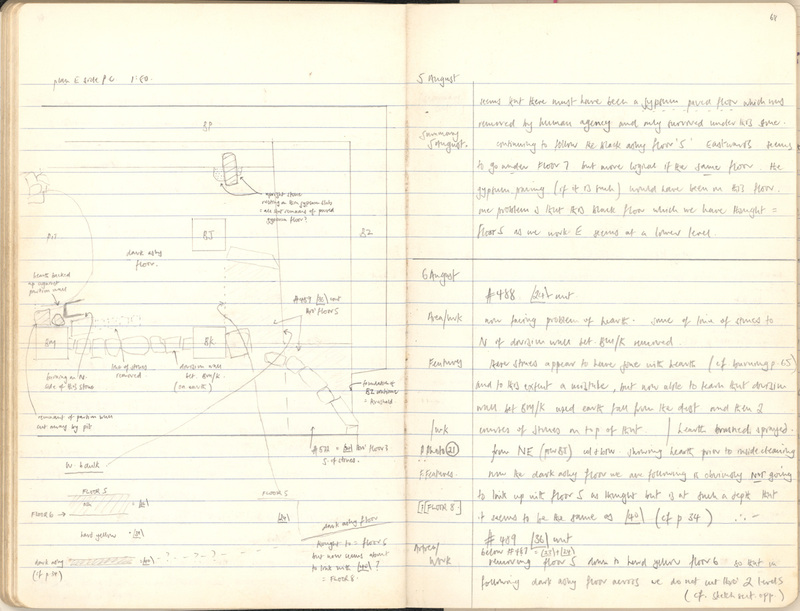 plan E side P.G. 1:50.
BP
PIT
upright stone
resting on thin gypsum slab
= all that remains of paved
gypsum floor?
BJ
B2
dark ashy
floor.
hearth backed
up against
partition wall
#489 /36/ unit
floor 5
BM
BK
burning on N.
side of this stone
line of stones
removed
division wall
bet. BM/K
(on earth)
foundation of
B2
= threshold
remnant of partition wall
cut away by pit
floor 5
S. of stones.
W baulk
FLOOR 5
FLOOR 5
FLOOR 6 →
hard yellow
dark ashy
(cf p 34)
dark ashy floor
thought to = floor 5
but now seems about
to link with /40/ ?
= FLOOR 8.
68
5 August
seems that there must have been a gypsum paved floor which was
removed by human agency and only survived under this stone.
Summary
5 August.
continuing to follow the black ashy floor '5'. Eastwards seems
to go under Floor 7 but more logical if the same floor. The
gypsum paving (if it is such) would have been on this floor.
one problem is that this black floor which we have thought =
floor 5 as we work E seems at a lower level.
6 August
#488. /24/ unit
Area/wk
now facing problem of hearth. Some of line of stones to
N of division wall bet. BM/K removed.
Features
these stones appear to have gone with hearth (cf burning p. 65)
and to this extent a mistake, but now able to learn that division
wall bet BM/K used earth fall from the dest and then 2
courses of stones on top of that. | hearth brushed, sprayed.
/wk
P Photo (21)
from NE (nr BJ) col + b/w showing hearth prior to inside cleaning
F. Features.
now the dark ashy floor we are following is obviously NOT going
to link up with floor 5 as thought but is at such a depth that
[?][FLOOR 8]
it seems to be the same as /40/ (cf p 34)
#489 /36/ unit
below #487 =
Area/
Work
removing floor 5 down to hard yellow floor 6 so that in
following dark ashy floor across we do not cut thro' 2 levels
(cf. sketch sect. opp.)